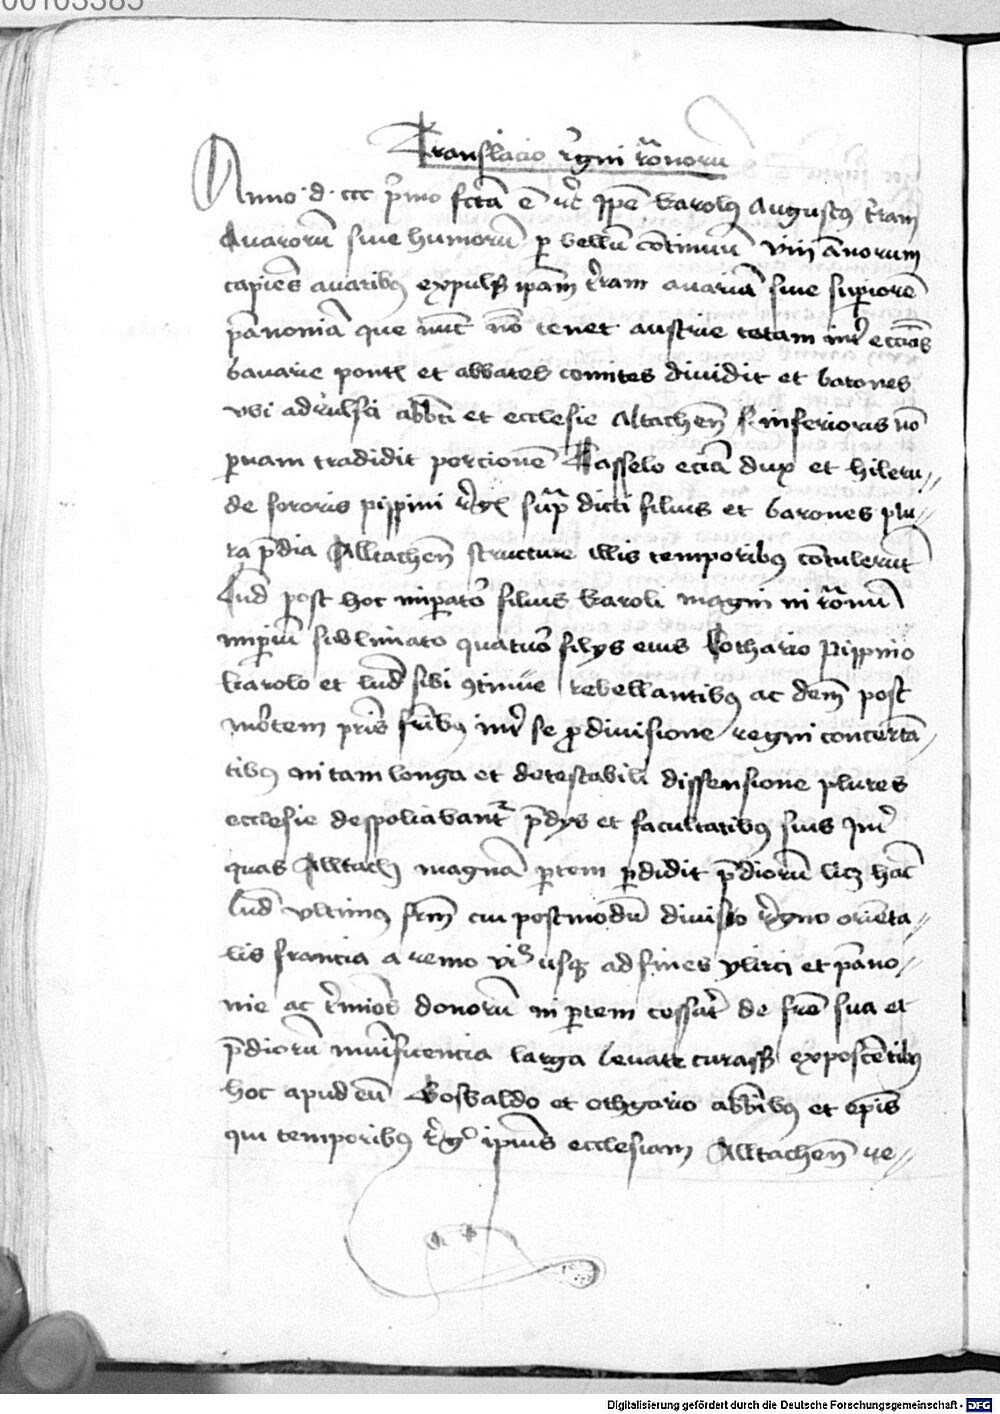 00103385
Translacio regni romanorum
Anno d ccc primo fcta e Karolus Augustus terram
Avarorum sive hunorum per bellum continuum viii annorum
capiens avaribus expulsis ipam terram avarum sive superiorem
panoniam que nunc nomen tenet austrie totam inter eccias
bavarie pontifices et abbates comites dividit et barones
ubi abbati et ecclesie Altachen inferioris non
parvam tradidit porcionem Tasselo eciam dux et hiltru
de sororis pippini regis supra dicti filius et barones plu
ra predia Alltachen structure illis temporibus contulerunt
Lud post hoc imperatore filius karoli magni in romanum
imperium sublimato quatuor filys eius Lothario Pippino
karolo et Lud sibi continue rebellantibus ac demum post
mortem patris fratribus inter se pro divisione regni concerta
tibus in tam longa et detestabili dissensione plures
ecclesie despoliabantur predys et facultatibus suis Inter
quas Alltach magnam partem perdidit prediorum licet hanc
Lud ultimus fratrum cui postmodum diviso regno orienta
lis francia a reno usque ad fines ylirici et pano
nie ac terminos in partem cesserat de sua et
prediorum munificencia larga levare curasset exposcentibus
hoc apud eum Gosbaldo et othgario abbatibus et epis
qui temporibus regis ipsius ecclesiam Alltachen re
Digitalisierung gefördert durch die Deutsche Forschungsgemeinschaft - DFG